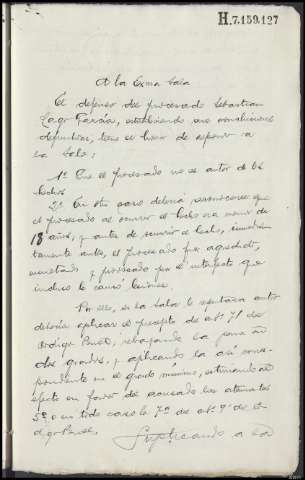 H.7.159.127
A la Exma Sala
El defensor del procesado Sebastian
Lago García, estableciendo sus conclusiones
definitivas, tiene el honor de exponer a
la Sala:
1ª Que el procesado no es autor de los
hechos
2ª En otro caso debería reconocerse que
el procesado al ocurrir el hecho era menor de
18 años, y antes de ocurrir el hecho, inmedia
tamente antes, el procesado fue agredido,
y provocado por el interfecto que
incluso le causó lesiones.
Por ello, si la Sala le reputara autor
debería aplicar el precepto del artº 71 del
Código Penal, rebajando la pena en
dos grados, y aplicando la así corres
pondiente en el grado mínimo, estimando al
efecto en favor del acusado las atenuantes
5ª o en todo caso la 7ª del artº 9º del Có
digo Penal.
Suplicando a la